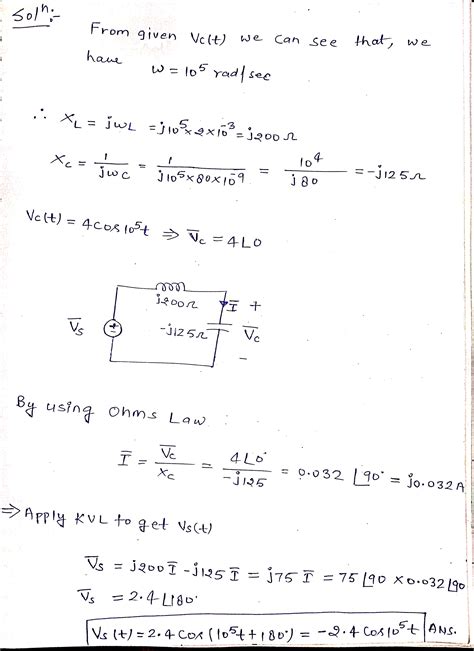 Solⁿ:-
From given Vc(t) we can see that, we
have
ω = 10⁵ rad/sec
∴ X_L = jωL = j10⁵×2×10⁻³ = j200Ω
X_C = 1/jωC = 1/j10⁵×80×10⁻⁹ = 10⁴/j80 = -j125Ω
Vc(t) = 4cos10⁵t ⇒ V̄c = 4∠0
j200Ω
Ī +
V̄s
-j125Ω
V̄c
-
By using Ohms Law :
Ī = V̄c/X_C = 4∠0°/-j125 = 0.032 ∠90° = j0.032A
⇒ Apply KVL to get Vs(t)
V̄s = j200Ī - j125Ī = j75Ī = 75∠90 × 0.032∠90
V̄s = 2.4∠180°
Vs(t) = 2.4cos(10⁵t+180°) = -2.4cos10⁵t ANS.